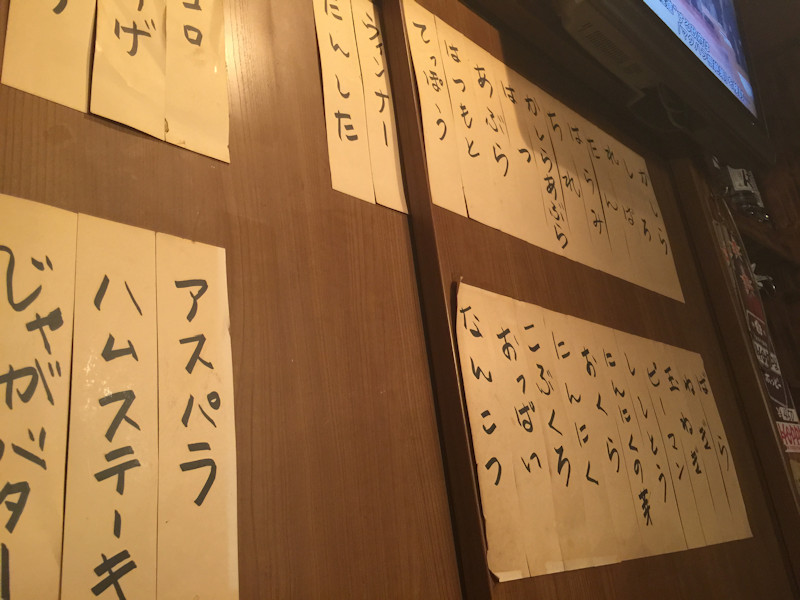 かしら
しろ
れば
たん
はらみ
はつ
ちれ
かしらあぶら
はつ
あぶら
はつもと
てっぽう
ウィンナー
たんした
コロ
げ
ばら
ねぎ
玉ねぎ
ピーマン
ししとう
にんにくの芽
おくら
にんにく
こぶくろ
おっぱい
なんこつ
アスパラ
ハムステーキ
じゃがバター